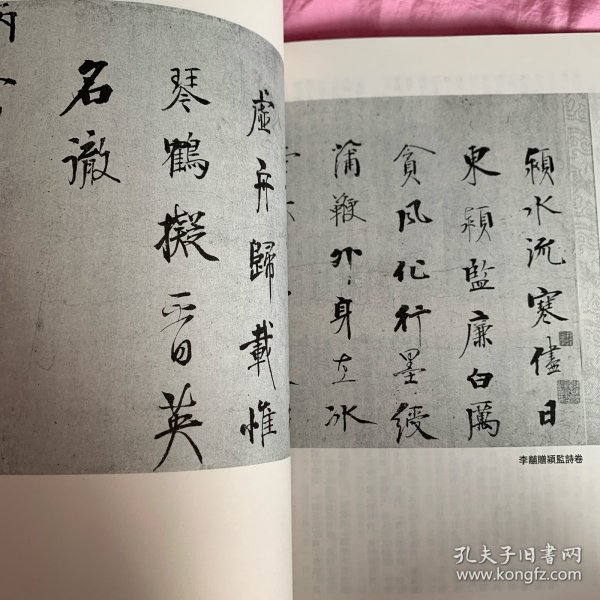 潁水流寒儘日
東潁監廉白厲
貪風化行墨綬
蒲鞭外身在冰
虛舟歸載惟
琴鶴擬晋英
名澈
李䶮贈潁監詩卷
孔夫子旧书网
www.kongfz.com